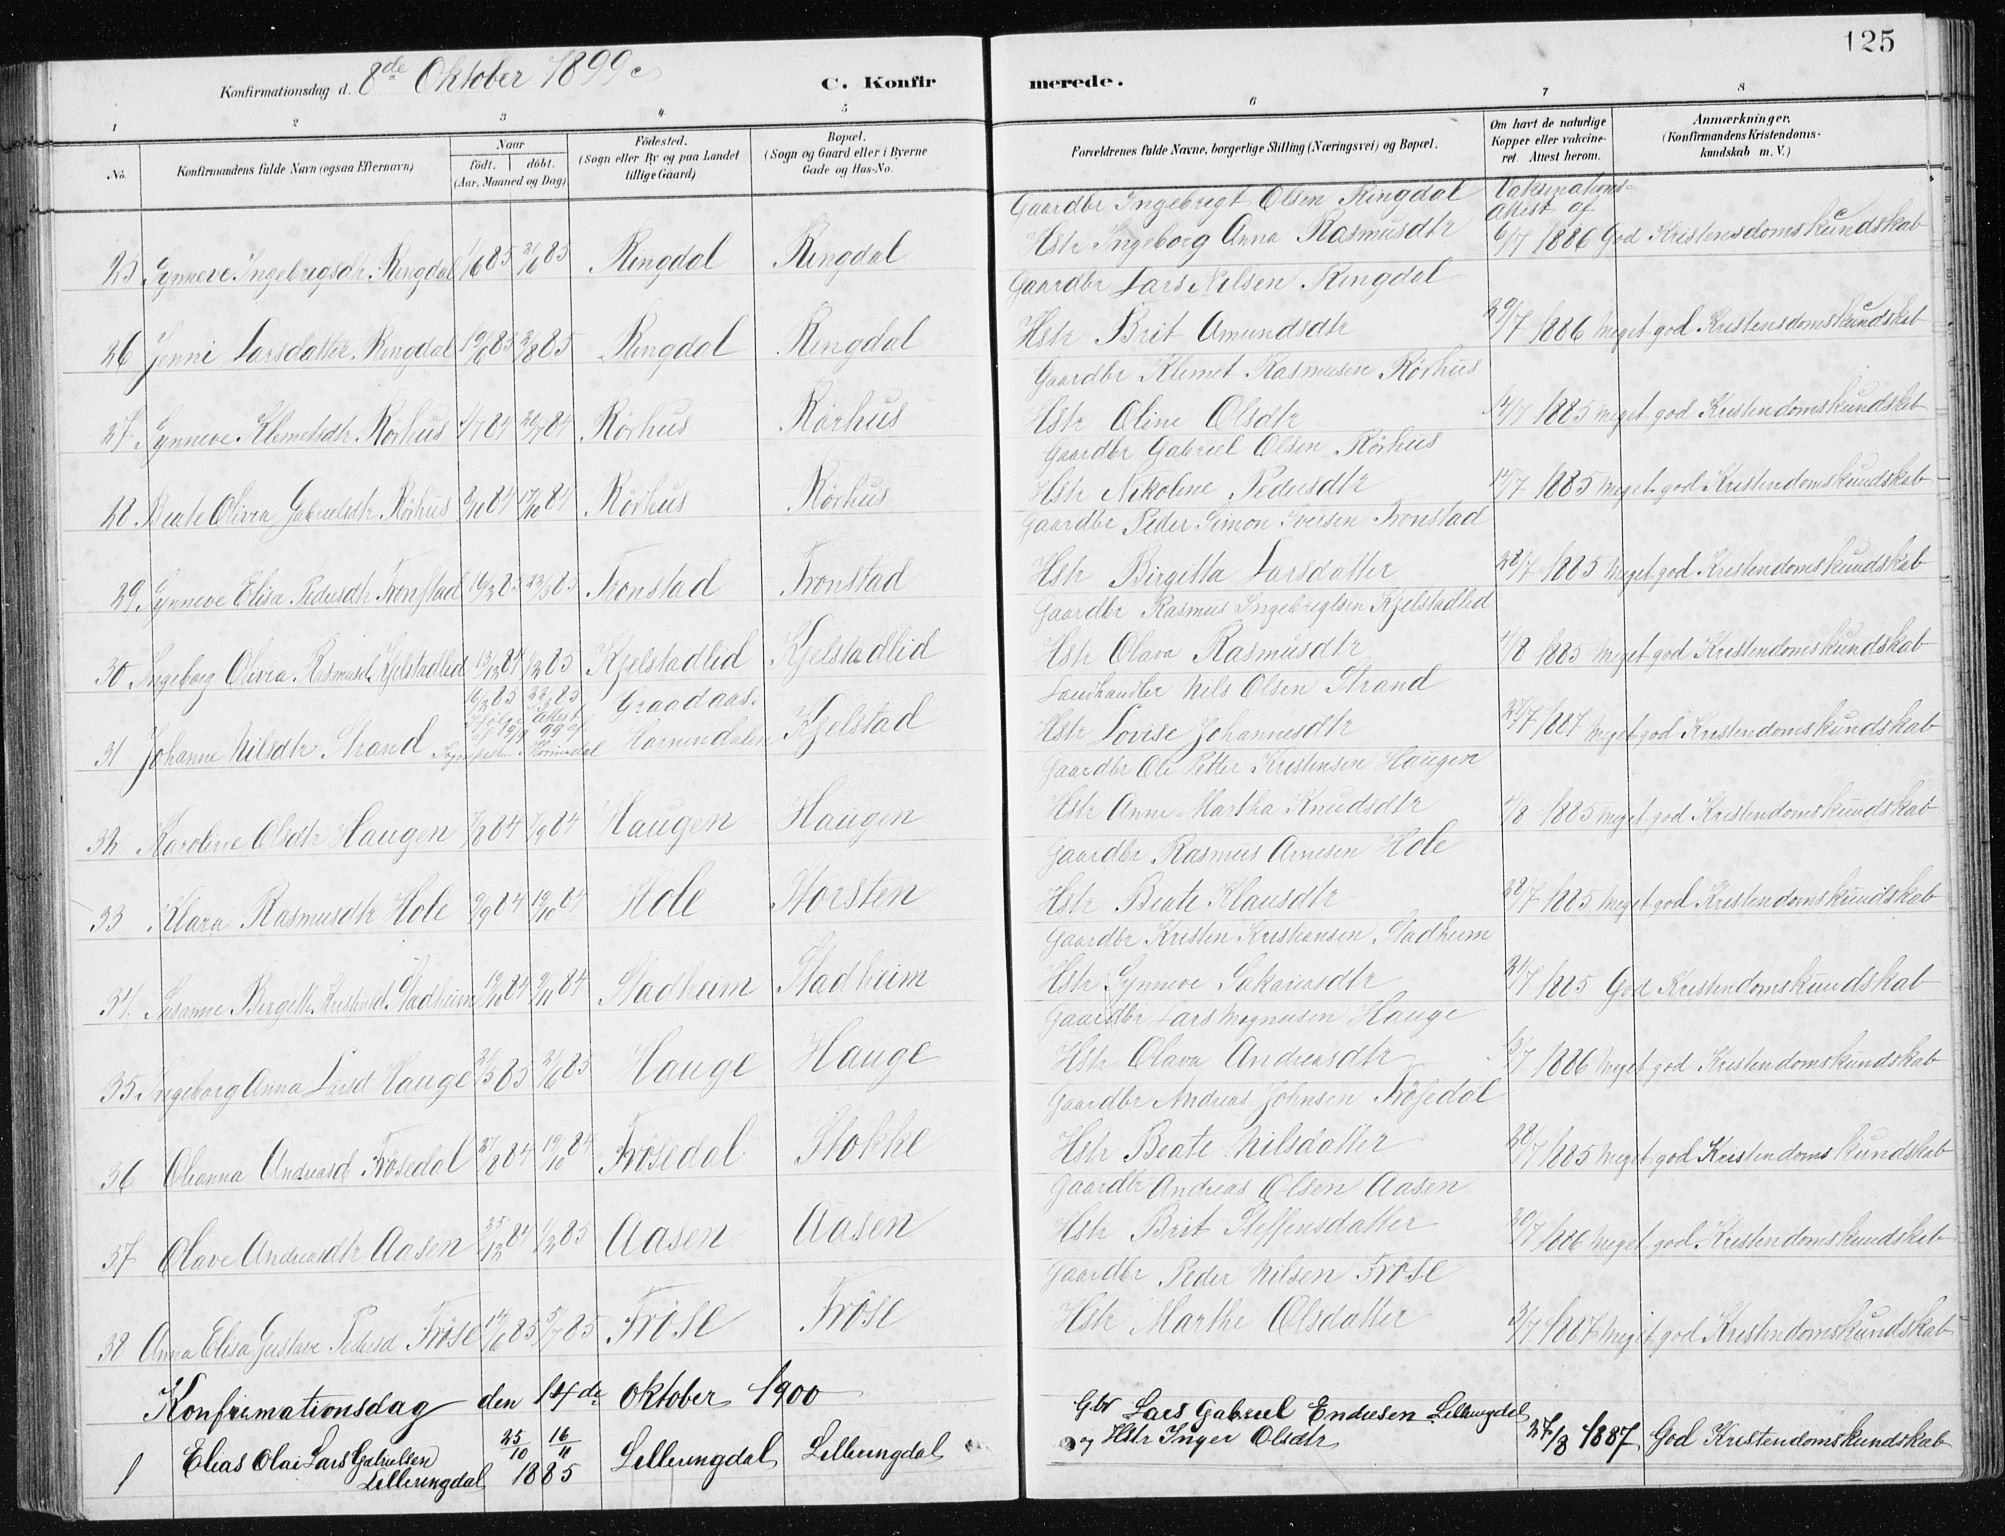 125
Konfirmationsdag d. 8de Oktober 1899
C. Konfirmerede.
1 2 3 4 5 6 7 8
No. Konfirmandens fulde Navn (ogsaa Efternavn) Naar födt. döbt. (Aar, Maaned og Dag) Födested. (Sogn eller By og paa Landet tillige Gaard) Bopæl. (Sogn og Gaard eller i Byerne Gade og Hus-No. Forældrenes fulde Navne, borgerlige Stilling (Næringsvei) og Bopæl. Om havt de naturlige Kopper eller vakcineret. Attest herom. Anmærkninger. (Konfirmandens Kristendomskundskab m. V.)
Gaardbr Ingebrigt Olsen Ringdal Vaksinations-
attest af
25 Synneve Ingebrigsdtr Ringdal 1/6 85 21/6 85 Ringdal Ringdal Hstr Ingeborg Anna Rasmusdtr 6/7 1886 God Kristensdomskundskab
Gaardbr Lars Nilsen Ringdal
26 Jenni Larsdatter Ringdal 19/6 85 2/8 85 Ringdal Ringdal Hstr Brit Amundsdtr 29/7 1886 Meget god Kristensdomskundskab
Gaardbr Klemet Rasmusen Rörhus
27 Synneve Klemetsdtr Rörhus 4/7 84 20/7 84 Rörhus Rörhus Hstr Oline Olsdtr 14/7 1885 Meget god Kristendomskundskab
Gaardbr Gabriel Olsen Rörhus
28 Beate Olivia Gabrielsdtr Rörhus 9/10 84 19/10 84 Rörhus Rörhus Hstr Nikoline Pedersdtr 14/7 1885 Meget god Kristendomskundskab
Gaardbr Peder Simon Iversen Tronstad
29 Synneve Elisa Pedersdtr Tronstad 16/2 85 22/3 85 Tronstad Tronstad Hstr Birgitta Larsdatter 28/7 1885 Meget god Kristendomskundskab
Gaardbr Rasmus Ingebrigtsen Kjelstadlid
30 Ingeborg Olivia Rasmusd Kjelstadlid 13/12 84 1/2 85 Kjelstadlid Kjelstadlid Hstr Olava Rasmusdtr 4/8 1885 Meget god Kristendomskundskab
16/2 85 22/3 85 Graadaas. Landhandler Nils Olsen Strand
31 Johanne Nilsdtr Strand Hornindalen Kjelstad Hstr Lovise Johannesdtr 27/7 1887 Meget god Kristendomskundskab
Gaardbr Ole Petter Kristensen Haugen
32 Karoline Olsdtr Haugen 7/8 84 7/9 84 Haugen Haugen Hstr Anne Martha Knudsdtr 4/8 1885 Meget god Kristendomskundskab
Gaardbr Rasmus Arnesen Hole
33 Klara Rasmusdtr Hole 9/9 84 19/10 84 Hole Storsten Hstr Beate Klausdtr 28/7 1885 Meget god Kristendomskundskab
Gaardbr Kristen Kristiansen Stadheim
34. Susanne Birgitte Kristensd. Stadheim 19/10 84 9/11 84 Stadheim Stadheim Hstr Synneve Sakariasdtr 21/7 1885 God Kristendomskundskab
Gaardbr Lars Magnusen Hauge
35 Ingeborg Anna Larsd Hauge 21/5 85 21/6 85 Hauge Hauge Hstr Olava Andreasdtr 5/7 1886 Meget god Kristendomskundskab
Gaardbr Andreas Johnsen Frösedal
36 Olianna Andreasd Frösedal 27/8 84 19/10 84 Frösedal Stokke Hstr Beate Nilsdatter 28/7 1885 Meget god Kristendomskundskab
Gaardbr Andreas Olsen Aasen
37 Olave Andreasdtr Aasen 25/12 84 1/2 85 Aasen Aasen Hstr Brit Steffensdatter 30/7 1886 Meget god Kristendomskundskab
Gaardbr Peder Nilsen Fröse
38 Anna Elisa Gustava Pedersd Fröse 14/6 85 5/7 85 Fröse Fröse Hstr Marthe Olsdatter 2/7 1887 Meget god Kristendomskundskab
Konfirmationsdag den 14de Oktober 1900
Gbr Lars Gabriel Endresen Lilleringdal
1 Elias Olai Lars Gabrielsen 25/10 16/11 Lilleringdal Lilleringdal og Hstr Inger Olsdtr 27/8 1887 God Kristendomskundskab
Lilleringdal 1885